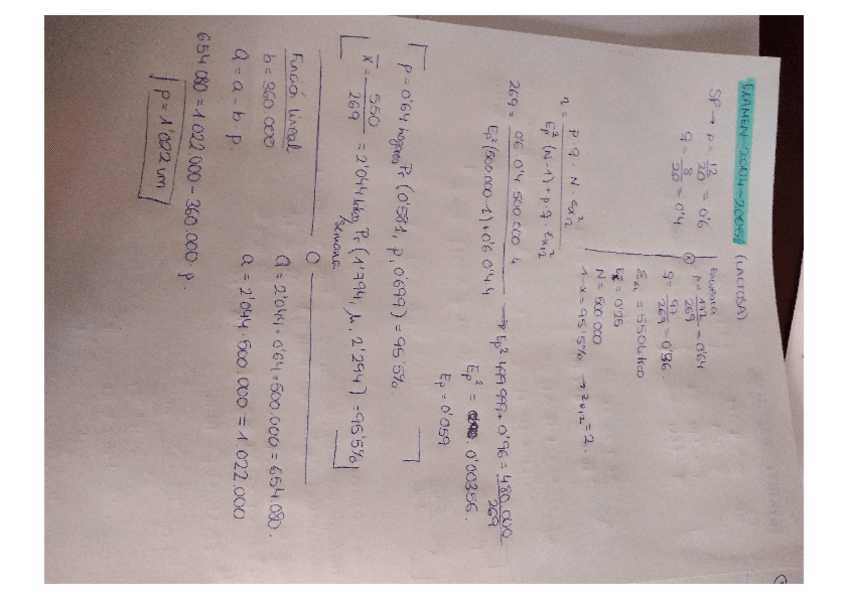 EXAMEN-2004-2005 (LACTOSA)
SP → p = 12/20 = 0'6
q = 8/20 = 0'4
Encuesta
p = 172/269 = 0'64
q = 97/269 = 0'36.
Σxi = 550
Ex̄ = 0'25
N = 500 000
1-α = 95'5% → Zα/2 = 2.
n = p q · N · Zα/2² / Ep² (N-1) + p q · Zα/2²
269 = 0'6 0'4 500 000 4 / Ep² (500 000-1) + 0'6 0'4 4 → Ep² · 499 999 + 0'96 = 480 000 / 269
Ep² = 0'00356.
Ep = 0'059
p = 0'64 hogares Pr (0'581, p, 0'699) = 95'5%.
x̄ = 550/269 = 2'044 litros/semana Pr (1'794, μ, 2'294) = 95'5%
Funció lineal
b = 360 000
q = a - b p.
q = 2'044 · 0'64 · 500.000 = 654.080.
a = 2'044 · 500 000 = 1 022.000
654 080 = 1 022 000 - 360.000 · p.
p = 1'022 um